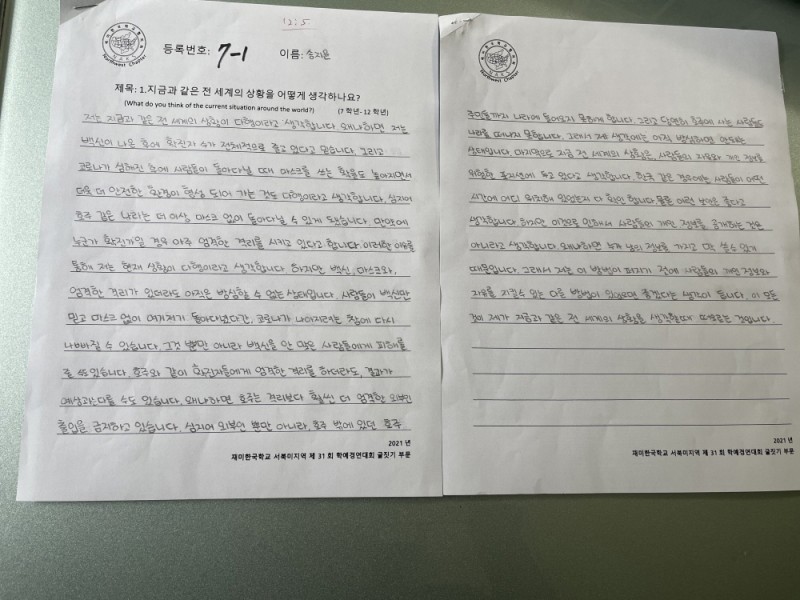 12:5
Northwest Chapter
등록번호: 7-1 이름: 송지윤
제목: 1.지금과 같은 전 세계의 상황을 어떻게 생각하나요?
(What do you think of the current situation around the world?) (7 학년- 12 학년)
저는 지금과 같은 전 세계의 상황이 다행이라고 생각합니다. 왜냐하면 저는
백신이 나온 후에 확진자 수가 전체적으로 줄고 있다고 믿습니다. 그리고
코로나가 심해진 후에 사람들이 돌아다닐 때 마스크를 쓰는 확률도 높아지면서
더욱 더 안전한 환경이 형성 되어 가는 것도 다행이라고 생각합니다. 심지어
호주 같은 나라는 더 이상 마스크 없이 돌아다닐 수 있게 됐습니다. 만약에
누군가 확진자일 경우 아주 엄격한 격리를 시키고 있다고 합니다. 이러한 이유를
통해 저는 현재 상황이 다행이라고 생각합니다. 하지만 백신, 마스크와,
엄격한 격리가 있더라도 아직은 방심할 수 없는 상태입니다. 사람들이 백신만
믿고 마스크 없이 여기저기 돌아다녔다간, 코로나가 나아지려는 참에 다시
나빠질 수 있습니다. 그것 뿐만 아니라 백신을 안 맞은 사람들에게 피해를
줄 수 있습니다. 호주와 같이 확진자들에게 엄격한 격리를 하더라도, 결과가
예상과 다를 수도 있습니다. 왜냐하면 호주는 격리보다 훨씬 더 엄격한 외부인
출입을 금지하고 있습니다. 심지어 외부인 뿐만 아니라, 호주 밖에 있던 호주
2021 년
재미한국학교 서북미지역 제 31 회 학예경연대회 글짓기 부문
Northwest Chapter
주민들까지 나라에 들어오지 못하게 합니다. 그리고 당연히 호주에 사는 사람들도
나라를 떠나지 못합니다. 그래서 제 생각에는 아직 방심하면 안되는
상태입니다. 마지막으로 지금 전 세계의 상황은, 사람들의 자유와 개인 정보를
위험한 두고 있다고 생각합니다. 한국 같은 경우에는 사람들이 어떤
시간에 어디 위치해 있었는지 다 확인 합니다. 물론 이런 보안은 좋다고
생각합니다. 하지만 이것으로 인해서 사람들의 개인 정보를 공개하는 것은
아니라고 생각합니다. 왜냐하면 누가 남의 정보를 가지고 쓸수 있게
때문입니다. 그래서 저는 이 방법이 퍼지기 전에 사람들의 개인 정보와
자유를 지킬수 있는 다른 방법이 있으면 좋겠다는 생각이 듭니다. 이 모든
것이 제가 지금과 같은 전 세계의 상황을 생각할때 떠오르는 것입니다.
2021 년
재미한국학교 서북미지역 제 31 회 학예경연대회 글짓기 부문